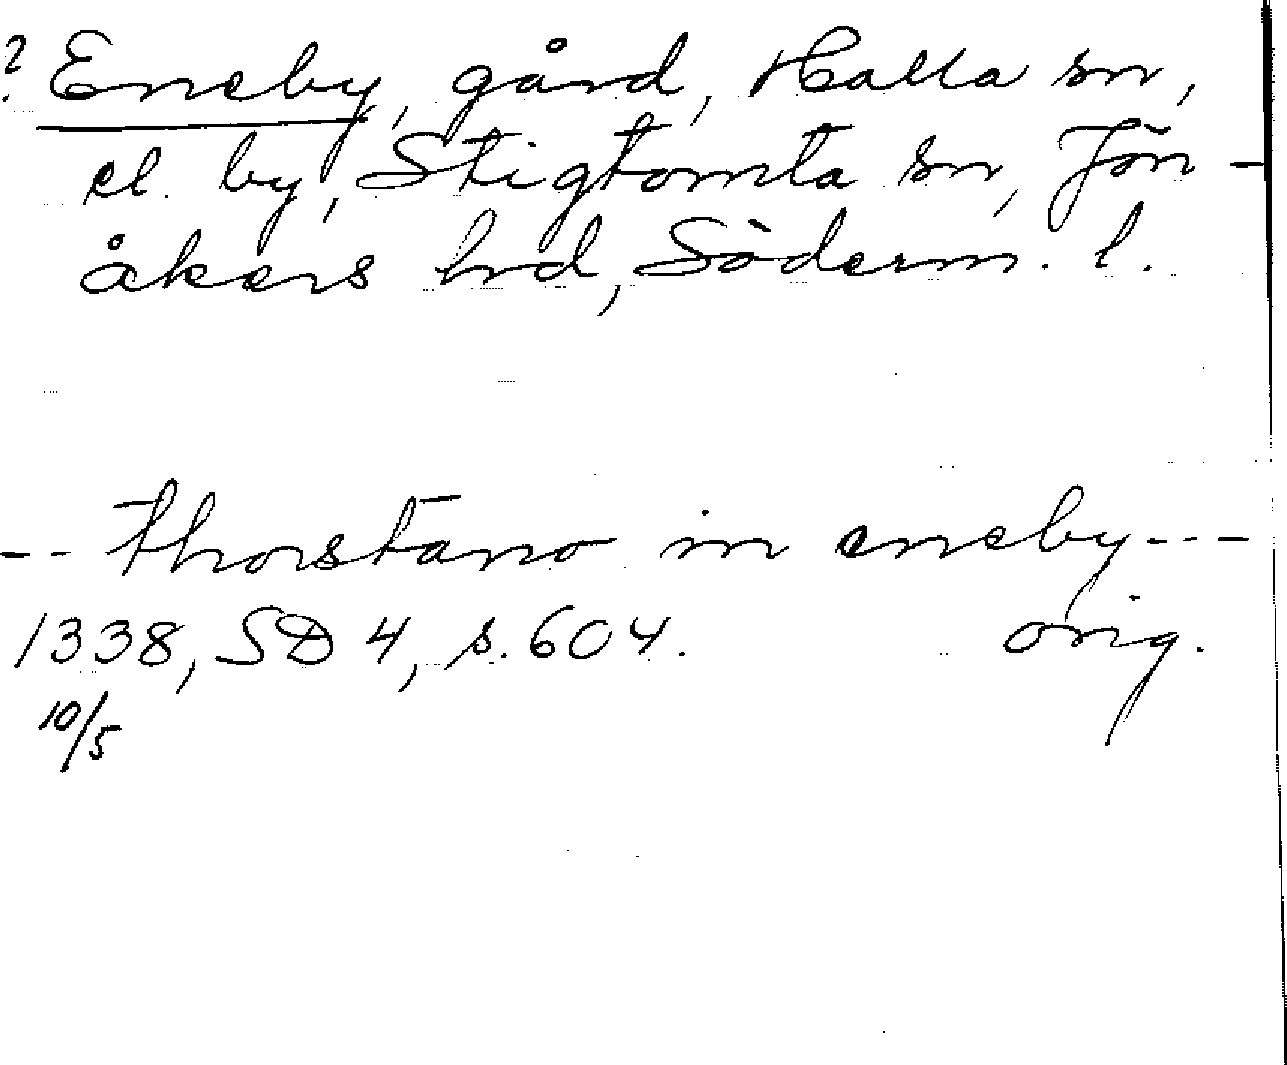 ? Eneby, gård, Halla sn,
el. by, Stigtomta sn, Jön-
åkers hd, Söderm. l.
-- thorstano in eneby ---
1338, SD 4, s. 604. orig.
10/5